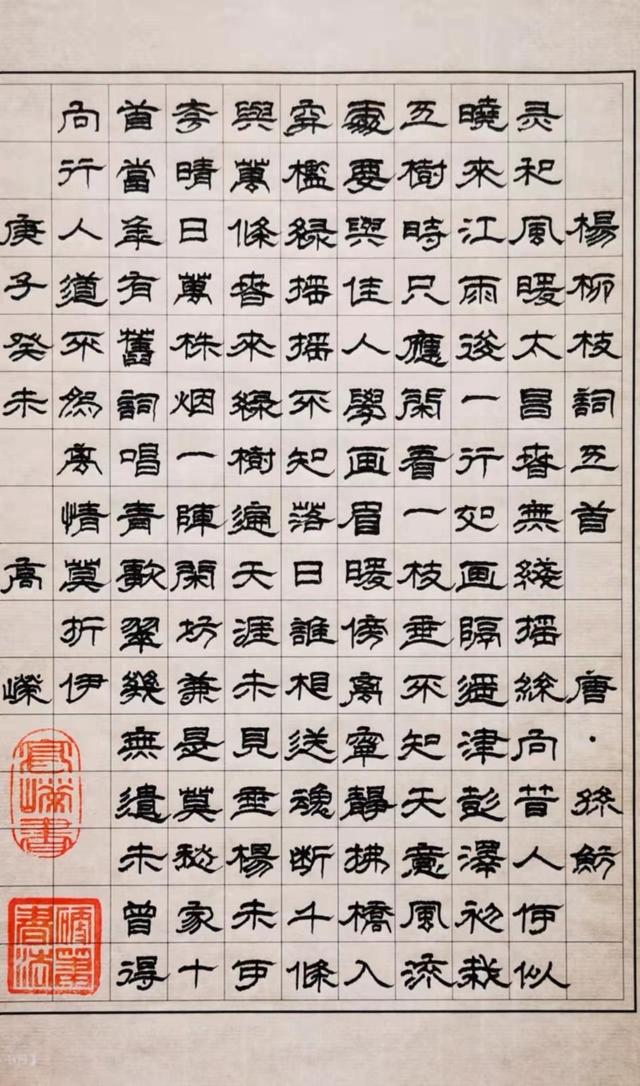 楊柳枝詞五首 唐·孫魴
灵和風暖太昌春無綫摇絲向昔人何似
曉來江雨後一行如画隔遥津彭澤初栽
五樹時只應閑看一枝垂不知天意風流
處要與佳人學画眉暖傍离亭靜拂橋入
穿檻緑摇摇不知落日誰相送魂断千條
與萬條春來緑樹遍天涯未見垂楊未可
夸晴日萬株烟一陣閑坊兼是莫愁家十
首當年有舊詞唱青歌翠幾無遺未曾得
向行人道不為离情莫折伊
庚子癸未 高嶸
高嶸書
硬筆書法